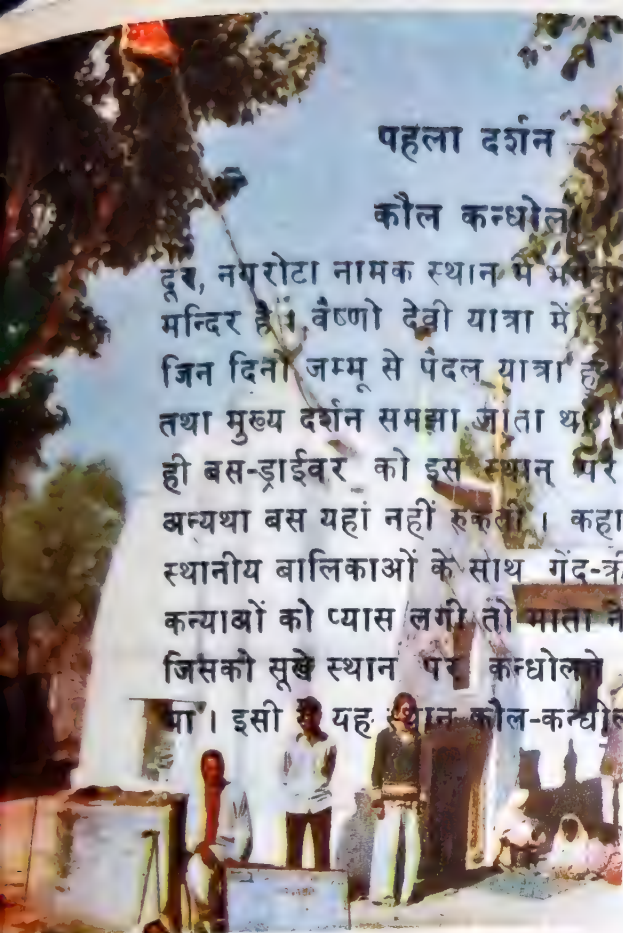 पहला दर्शन
कौल कन्धोल
दूर, नगरोटा नामक स्थान में
मन्दिर है । वैष्णो देवी यात्रा में
जिन दिनों जम्मू से पैदल यात्रा
तथा मुख्य दर्शन समझा जाता
ही बस-ड्राईवर को इस स्थान पर
अन्यथा बस यहां नहीं रुकती । कहा
स्थानीय बालिकाओं के साथ गेंद-क्री
कन्याओं को प्यास लगी तो माता ने
जिसको सूखे स्थान पर कन्धोलने
था । इसी से यह स्थान कौल-कन्धोल